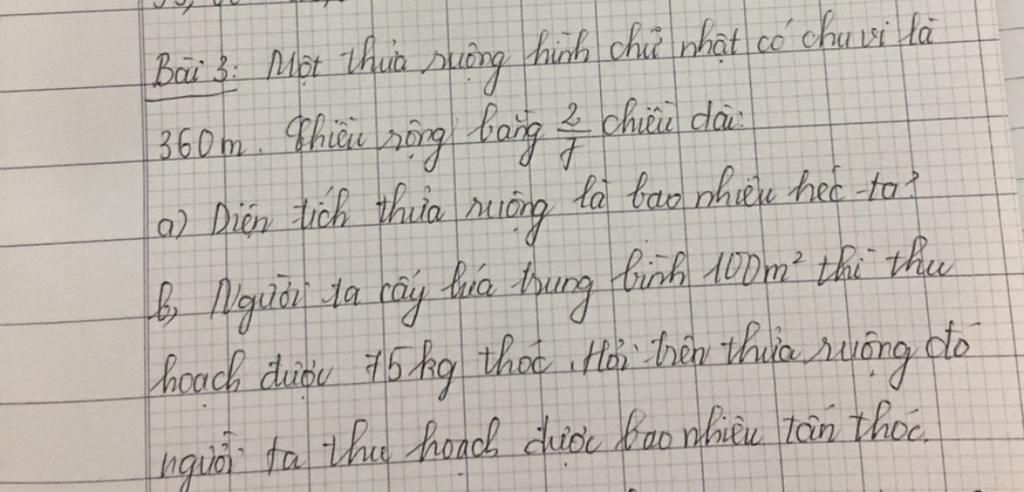 Bài 3: Một thửa ruộng hình chữ nhật có chu vi là
360m. Chiều rộng bằng 2/7 chiều dài:
a) Diện tích thửa ruộng là bao nhiêu héc-ta?
b, Người ta cấy lúa trung bình 100m² thì thu
hoạch được 75kg thóc. Hỏi trên thửa ruộng đó
người ta thu hoạch được bao nhiêu tấn thóc.